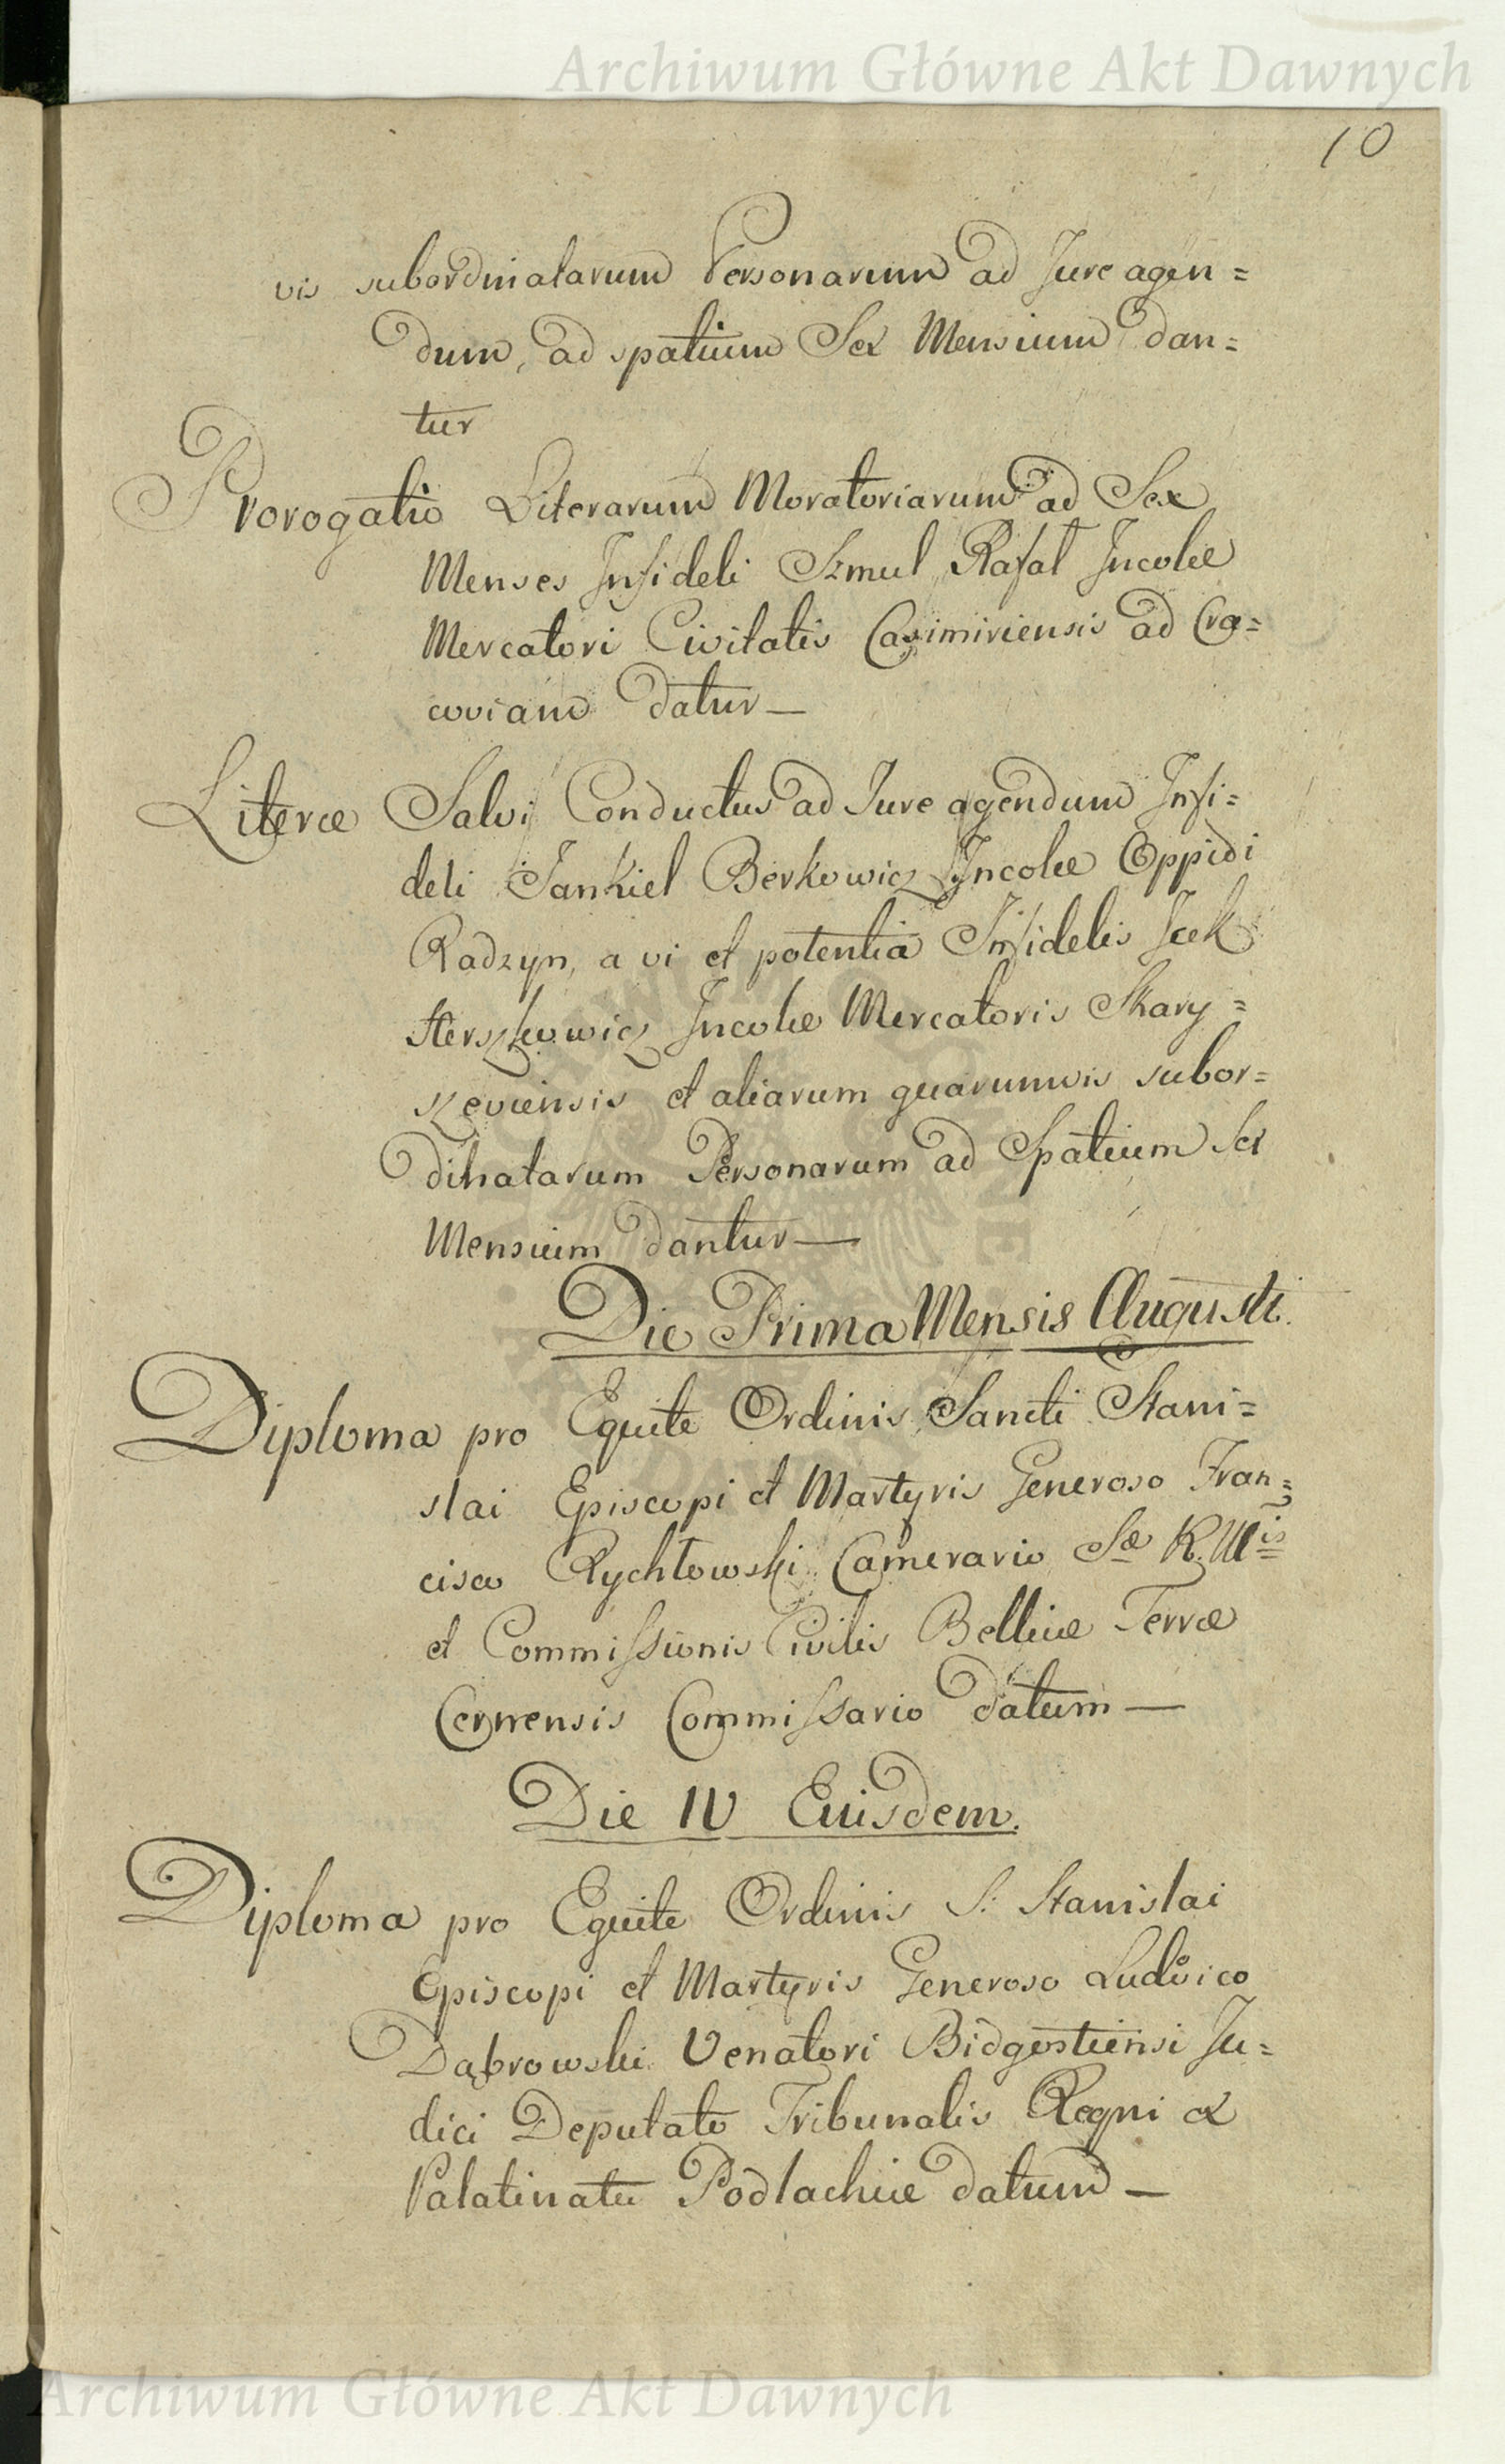 Archiwum Główne Akt Dawnych
10
vis subordinatarum Personarum ad Jure agen=
dum, ad spatium Sex Mensium dan=
tur
Prorogatio Literarum Moratoriarum ad Sex
Menses Infideli Szmul Rafał Incolæ
Mercatori Civitatis Casimiriensis ad Cra=
coviam datur—
Literæ Salvi Conductus ad Jure agendum Infi=
deli Jankiel Berkowicz Incolæ Oppidi
Radzyn, a vi et potentia Infidelis Icek
Herszkowicz Incolæ Mercatoris Skary=
szeviensis et aliarum quarumvis subor=
dinatarum Personarum ad Spatium Sex
Mensium dantur—
Die Prima Mensis Augusti.
Diploma pro Equite Ordinis Sancti Stani=
slai Episcopi et Martyris Generoso Fran=
cisco Rychłowski Camerario Sæ R. Mis
et Commissionis Civilis Bellicæ Terræ
Cernensis Commissario datum—
Die IV Eiusdem.
Diploma pro Equite Ordinis S: Stanislai
Episcopi et Martyris Generoso Ludovico
Dąbrowski Venatori Bidgostiensi Ju=
dici Deputato Tribunalis Regni ex
Palatinatu Podlachiæ datum—
Archiwum Główne Akt Dawnych